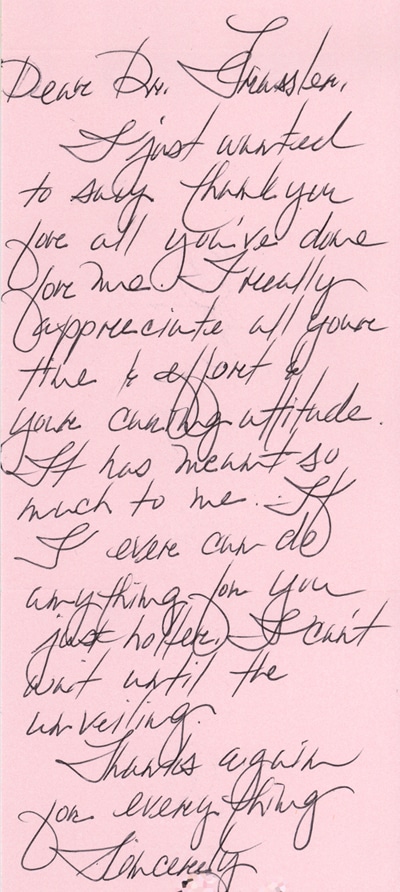 Dear Dr. Trassler,
I just wanted
to say thank you
for all you've done
for me. I really
appreciate all your
time & effort &
your caring attitude.
It has meant so
much to me. If
I ever can do
anything for you
just holler. I can't
wait until the
unveiling.
Thanks again
for everything
Sincerely